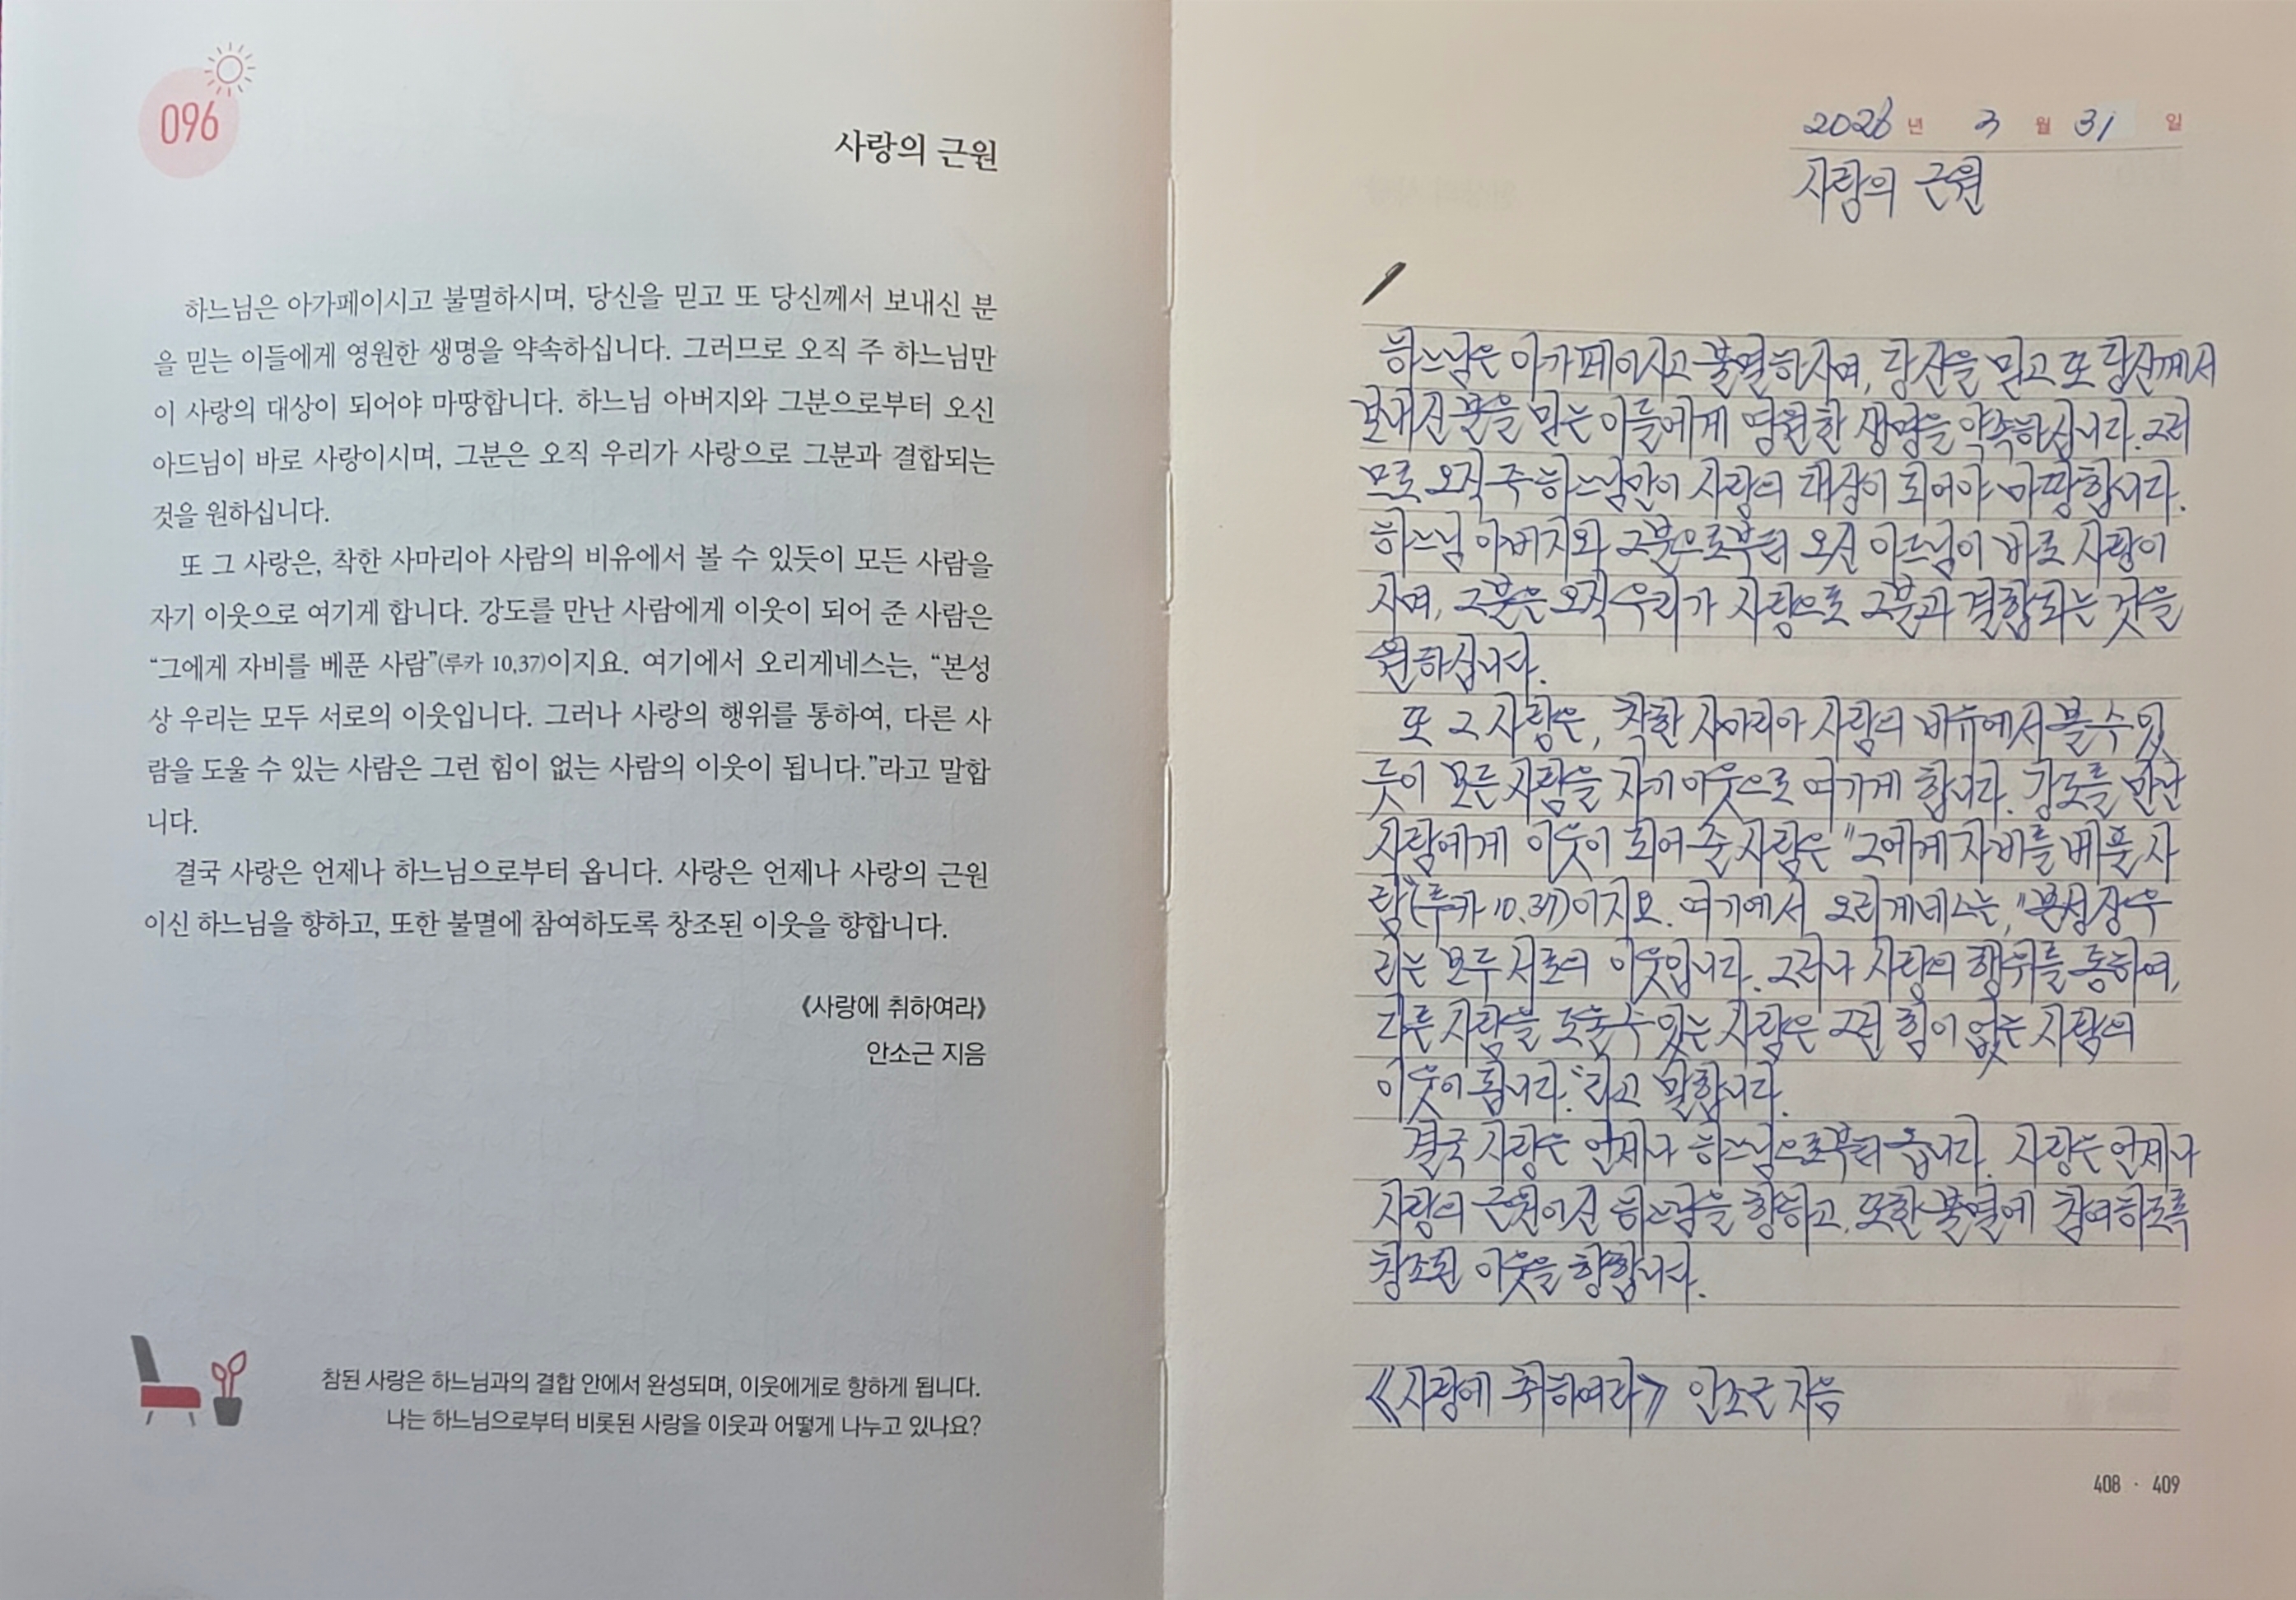 096
사랑의 근원
하느님은 아가페이시고 불멸하시며, 당신을 믿고 또 당신께서 보내신 분
을 믿는 이들에게 영원한 생명을 약속하십니다. 그러므로 오직 주 하느님만
이 사랑의 대상이 되어야 마땅합니다. 하느님 아버지와 그분으로부터 오신
아드님이 바로 사랑이시며, 그분은 오직 우리가 사랑으로 그분과 결합되는
것을 원하십니다.
또 그 사랑은, 착한 사마리아 사람의 비유에서 볼 수 있듯이 모든 사람을
자기 이웃으로 여기게 합니다. 강도를 만난 사람에게 이웃이 되어 준 사람은
“그에게 자비를 베푼 사람”(루카 10,37)이지요. 여기에서 오리게네스는, “본성
상 우리는 모두 서로의 이웃입니다. 그러나 사랑의 행위를 통하여, 다른 사
람을 도울 수 있는 사람은 그런 힘이 없는 사람의 이웃이 됩니다.”라고 말합
니다.
결국 사랑은 언제나 하느님으로부터 옵니다. 사랑은 언제나 사랑의 근원
이신 하느님을 향하고, 또한 불멸에 참여하도록 창조된 이웃을 향합니다.
《사랑에 취하여라》
안소근 지음
참된 사랑은 하느님과의 결합 안에서 완성되며, 이웃에게로 향하게 됩니다.
나는 하느님으로부터 비롯된 사랑을 이웃과 어떻게 나누고 있나요?
2026년 3월 31일
사랑의 근원
하느님은 아가페이시고 불멸하시며, 당신을 믿고 또 당신께서
보내신 분을 믿는 이들에게 영원한 생명을 약속하십니다. 그러
므로 오직 주 하느님만이 사랑의 대상이 되어야 마땅합니다.
하느님 아버지와 그분으로부터 오신 아드님이 바로 사랑이
시며, 그분은 오직 우리가 사랑으로 그분과 결합되는 것을
원하십니다.
또 그 사랑은, 착한 사마리아 사람의 비유에서 볼 수 있
듯이 모든 사람을 자기 이웃으로 여기게 합니다. 강도를 만난
사람에게 이웃이 되어 준 사람은 "그에게 자비를 베푼 사
람"(루카 10.37)이지요. 여기에서 오리게네스는, "본성상 우
리는 모두 서로의 이웃입니다. 그러나 사랑의 행위를 통하여,
다른 사람을 도울 수 있는 사람은 그런 힘이 없는 사람의
이웃이 됩니다."라고 말합니다.
결국 사랑은 언제나 하느님으로부터 옵니다. 사랑은 언제나
사랑의 근원이신 하느님을 향하고, 또한 불멸에 참여하도록
창조된 이웃을 향합니다.
《사랑에 취하여라》 안소근 지음
408 · 409